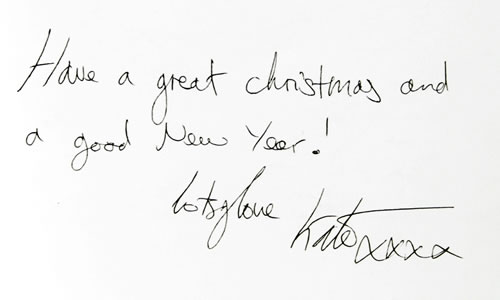 Have a great christmas and
a good New Year!
Lots of love Kate xxxx